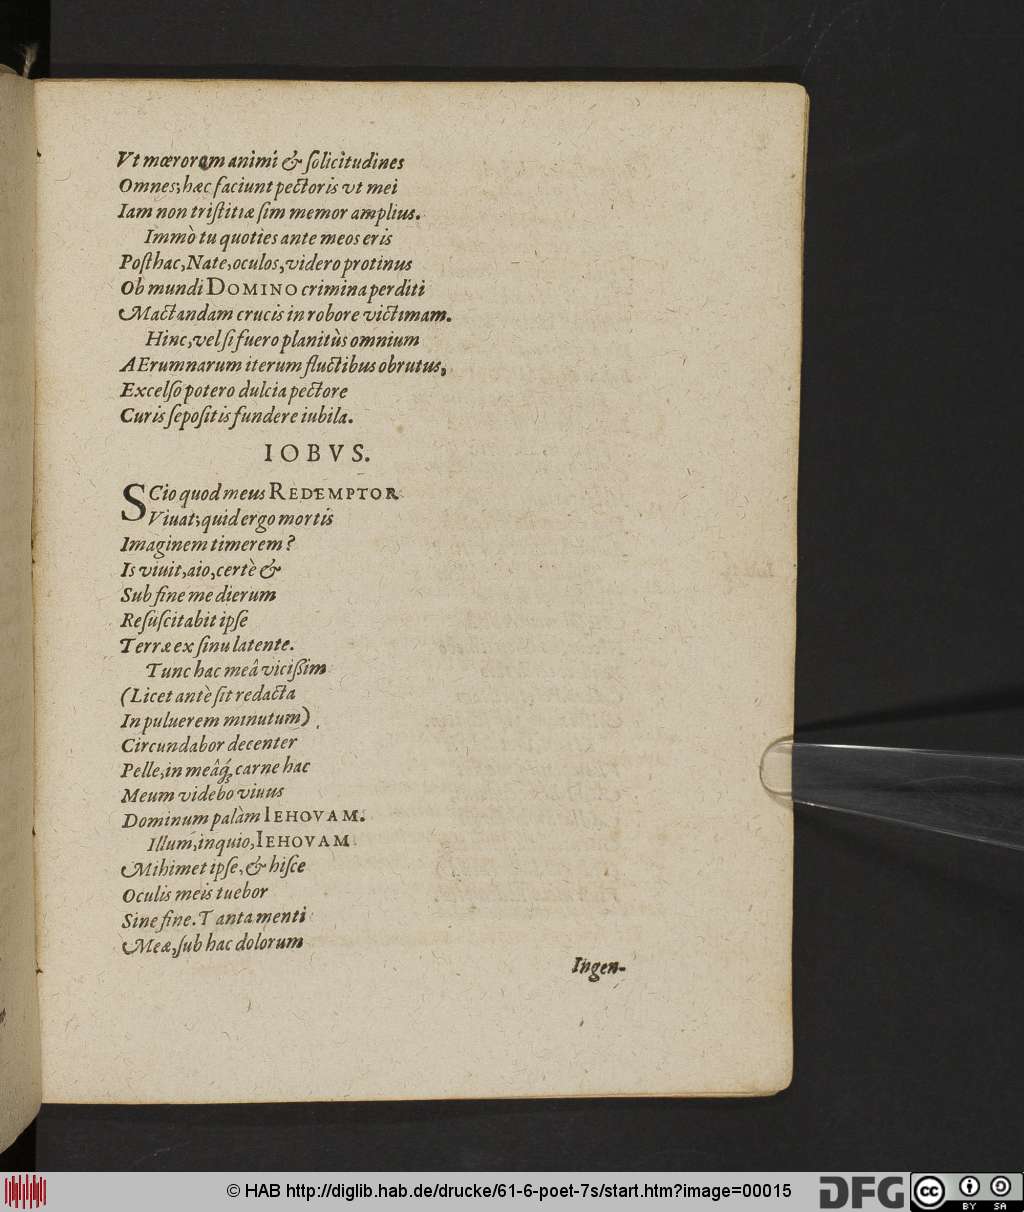 Vt mœrorum animi & ſolicitudines
Omnes; hæc faciunt pectoris vt mei
Iam non triſtitiæ ſim memor amplius.
Immò tu quoties ante meos eris
Poſthac, Nate, oculos, videro protinus
Ob mundi DOMINO crimina perditi
Mactandam crucis in robore victimam.
Hinc, vel ſi fuero planitùs omnium
AErumnarum iterum fluctibus obrutus,
Excelſo potero dulcia pectore
Curis ſepoſitis fundere iubila.
IOBVS.
SCio quod meus REDEMPTOR
Viuat; quid ergo mortis
Imaginem timerem?
Is viuit, aio, certè &
Sub fine me dierum
Reſuſcitabit ipſe
Terræ ex ſinu latente.
Tunc hac meâ viciſſim
(Licet antè ſit redacta
In puluerem minutum)
Circundabor decenter
Pelle, in meâq́; carne hac
Meum videbo viuus
Dominum palàm IEHOVAM.
Illum, inquio, IEHOVAM
Mihimet ipſe, & hiſce
Oculis meis tuebor
Sine fine. Tanta menti
Meæ, ſub hac dolorum
Ingen-
© HAB http://diglib.hab.de/drucke/61-6-poet-7s/start.htm?image=00015
DFG
cc
BY SA